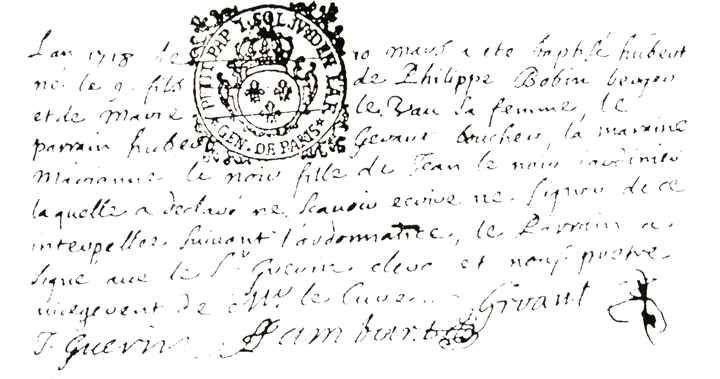 Lan 1718 de 10 mars a été baptisé hubert
né le 9. fils de Philippe Bobin berger
et de Marie le Vau sa femme, le
parrain hubert Gevant boucher, la maraine
Marianne le noir fille de Jean le noir jardinier
laquelle a declaré ne scavoir ecrire ne signer de ce
interpellée suivant l'ordonnance, le Parrain a
signé avec le Sr Guerin clerc et nous pretre
vicegerent de Mr le Curé.
Gevant
J. Guerin Jambart
PETIT PAP 1. SOL IVD EN PAR
GEN. DE PARIS